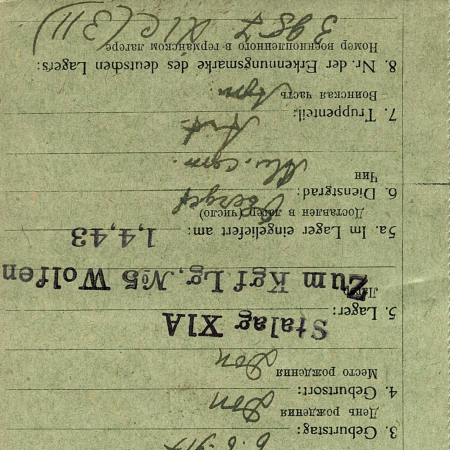 3. Geburtstag: 6.6.917
День рождения
4. Geburtsort: Don
Место рождения Don
Stalag XIA
5. Lager:
Лагерь
Zum Kgf Lg, №5 Wolfen
5a. Im Lager eingeliefert am: 1,4,43
Доставлен в лагерь (число)
6. Dienstgrad:
Чин
7. Truppenteil:
Воинская часть
8. Nr. der Erkennungsmarke des deutschen Lagers:
Номер военнопленного в германском лагере
XIC (311)